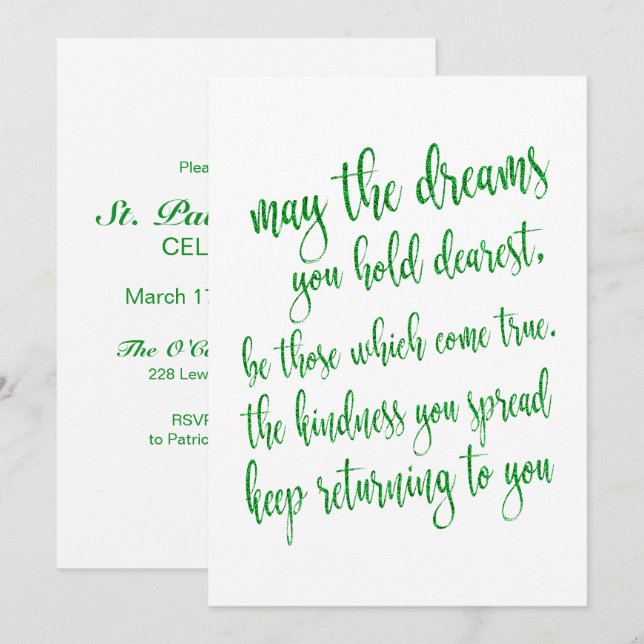 Plea
St. Pa
CEL
March 17
The O'C
228 Lew
RSVP
to Patric
may the dreams
you hold dearest,
be those which come true.
the kindness you spread
keep returning to you